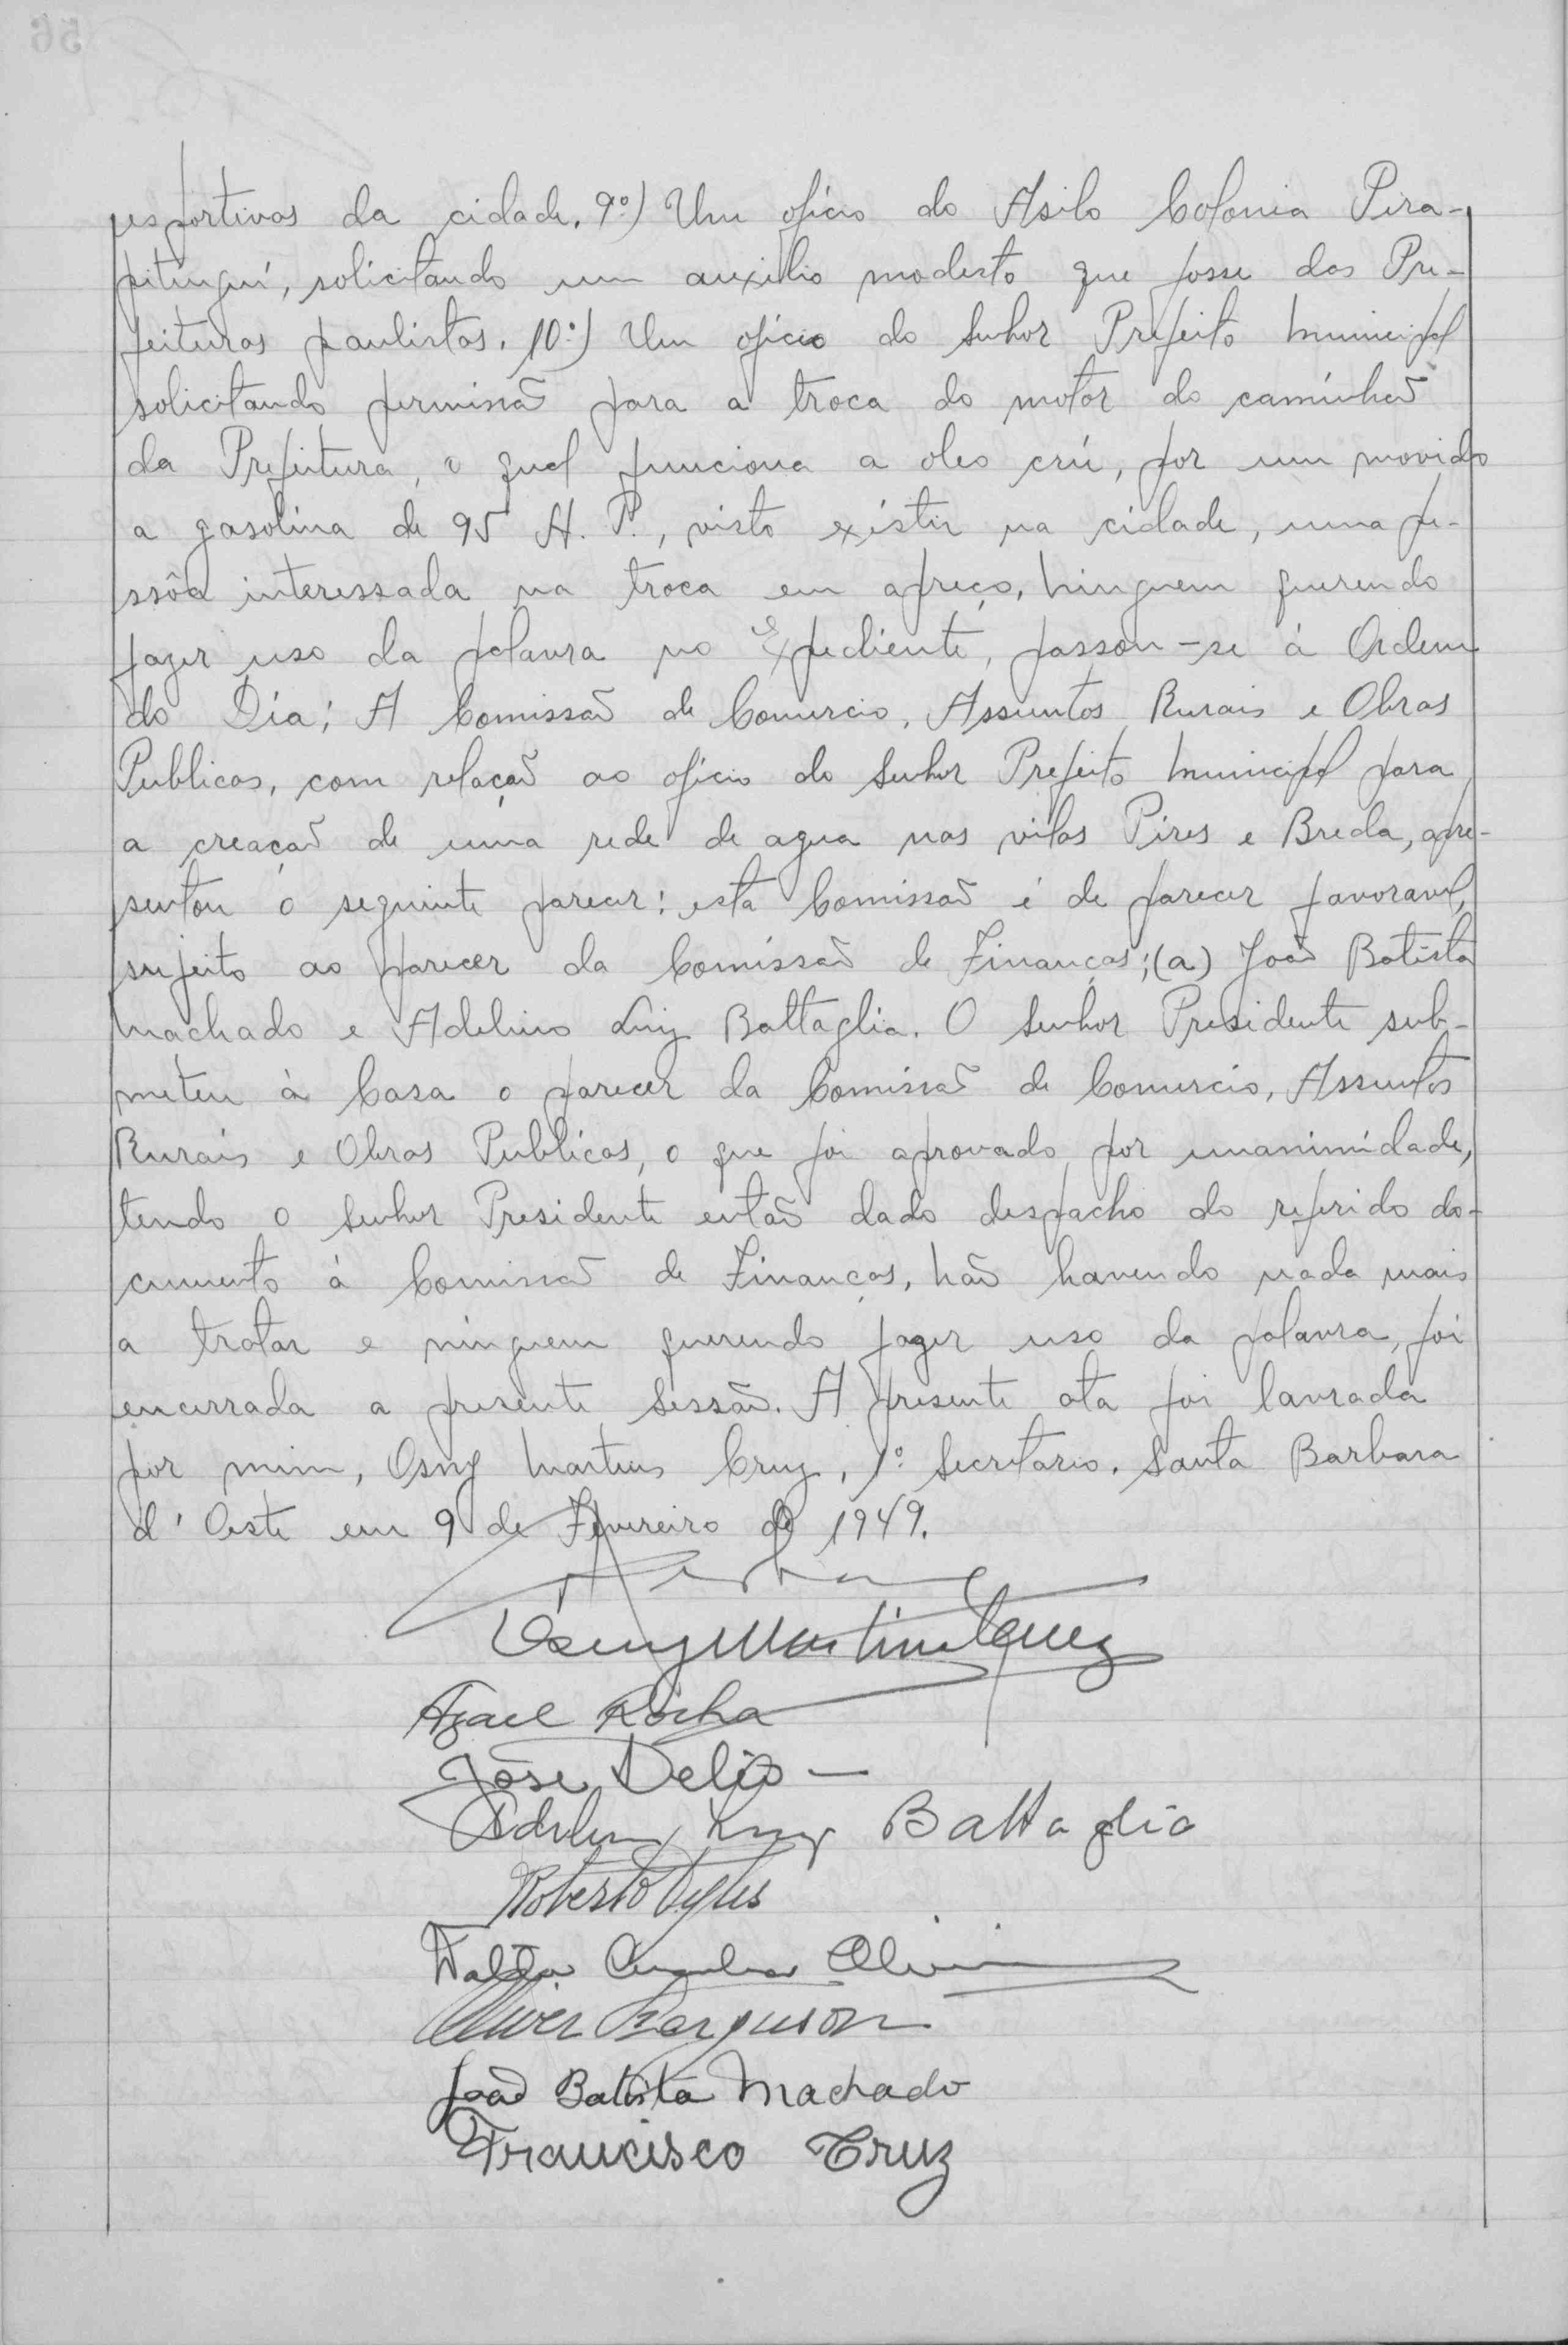 esportivas da cidade. 9º) Um oficio do Asilo Colonia Pira-
pitinguí, solicitando um auxilio modesto que fosse das Pre-
feituras paulistas. 10º) Um oficio do Senhor Prefeito Municipal
solicitando permissão para a troca do motor do caminhão
da Prefeitura, o qual funciona a oleo crú, por um movido
a gasolina de 95 H. P., visto existir na cidade, uma pe-
ssôa interessada na troca em apreço. Ninguem querendo
fazer uso da palavra no Expediente, passou-se à Ordem
do Dia: A Comissão de Comercio, Assuntos Rurais e Obras
Publicas, com relação ao oficio do Senhor Prefeito Municipal para
a creação de uma rede de agua nas vilas Pires e Breda, apre-
sentou o seguinte parecer: esta Comissão é de parecer favoravel,
sujeito ao parecer da Comissão de Finanças; (a) João Batista
Machado e Adelino Luiz Battaglia. O Senhor Presidente sub-
meteu à Casa o parecer da Comissão de Comercio, Assuntos
Rurais e Obras Publicas, o que foi aprovado por unanimidade,
tendo o Senhor Presidente então dado despacho do referido do-
cumento à Comissão de Finanças. Não havendo nada mais
a tratar e ninguem querendo fazer uso da palavra, foi
encerrada a presente Sessão. A presente ata foi lavrada
por mim, Osny Martins Cruz, 1º Secretario. Santa Barbara
d'Oeste em 9 de Fevereiro de 1949.
Osny Martins Cruz
Azael Rocha
José Delio
Adelino Luiz Battaglia
Roberto
Oliver Ferguson
João Batista Machado
Francisco Cruz
56